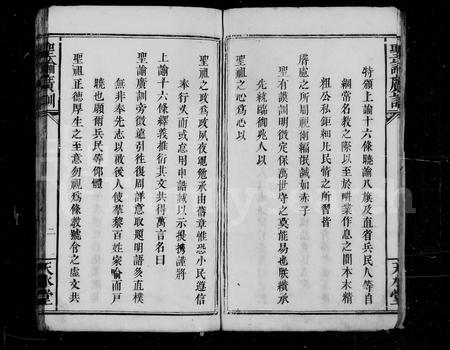 聖諭廣訓
特頒上諭十六條曉諭八旗及直省兵民人等自
綱常名教之際以至於耕桑作息之間本末精
粗公私鉅細凡民情之所習皆
睿慮之所周視爾編氓誠如赤子
聖有謨訓明徵定保萬世守之莫能易也朕纘承
大統臨御兆人以
聖祖之心為心以
天水堂
聖祖之政為政夙夜黽勉率由舊章惟恐小民遵信
奉行久而或怠用申誥誡以示提撕謹將
上諭十六條釋義推衍其文共得萬言名曰
聖諭廣訓旁徵遠引往復周詳意取顯明語多直樸
無非奉先志以啟後人使羣黎百姓家喻而戶
曉也願爾兵民等仰體
聖祖正德厚生之至意勿視為條教號令之虛文共
聖諭廣訓
二
天水堂